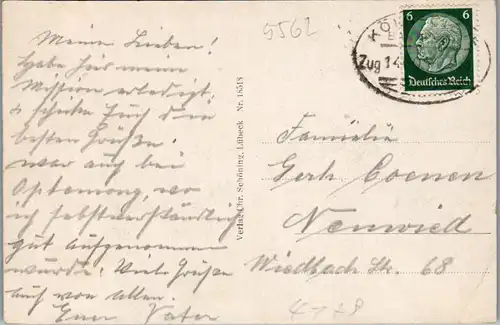 5562
Meine Lieben!
Habe hier meine
Mission erledigt,
& schicke Euch die
besten Grüße.
war auch bei
wo
ich selbstverständlich
gut aufgenommen
wurde. Viele Grüße
Auch von allen.
Euer Vater
Verlag Chr. Schöning, Lübeck Nr. 18518
KÖL
Zug 14
6 6
Deutsches Reich
Familie
Gerh. Coenen
Neuwied
Wiedbach Str. 68